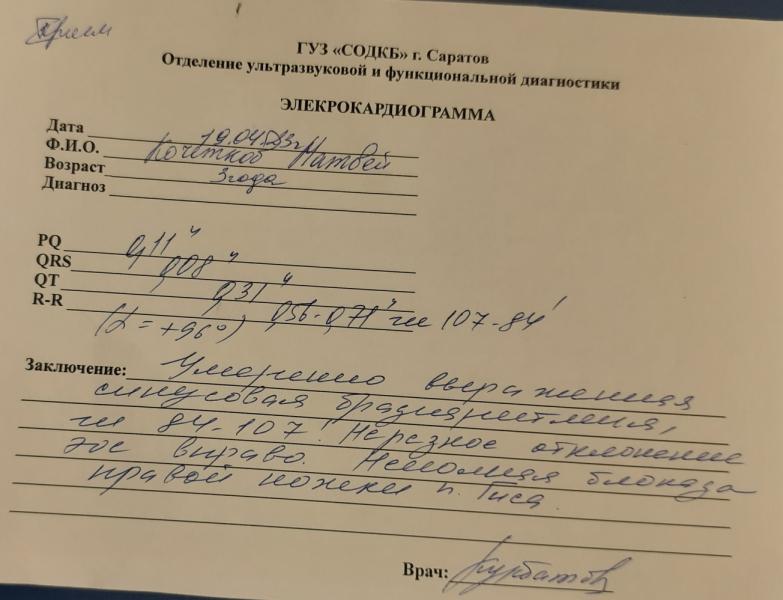 Прием
ГУЗ «СОДКБ» г. Саратов
Отделение ультразвуковой и функциональной диагностики
ЭЛЕКРОКАРДИОГРАММА
Дата 19.04.23г
Ф.И.О. Кочетков Матвей
Возраст 3года
Диагноз
PQ 0,11"
QRS 0,08"
QT 0,31"
R-R 0,56-0,71" чсс 107-84'
(α = +96°)
Заключение: Умеренно выраженная
синусовая брадиаритмия,
чсс 84-107'. Нерезкое отклонение
ЭОС вправо. Неполная блокада
правой ножки п. Гиса.
Врач: Курбатов